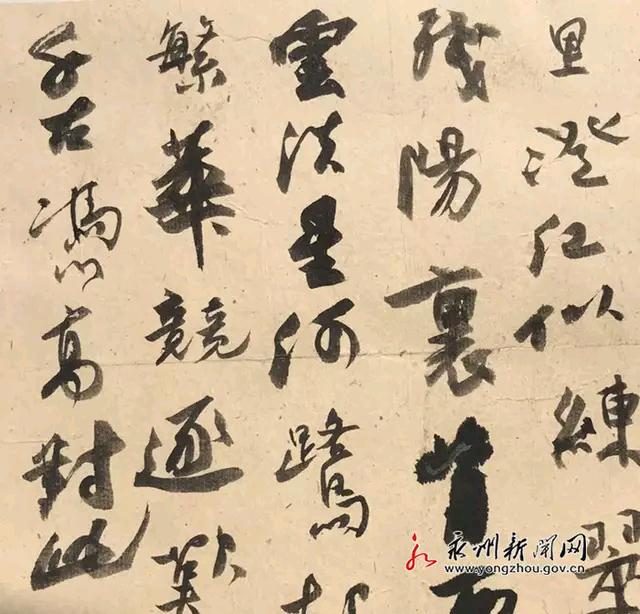 里澄江似練翠
殘陽裏背西
雲淡星河鷺起
繁華競逐歎
千古憑高對此
永州新闻网
www.yongzhou.gov.cn